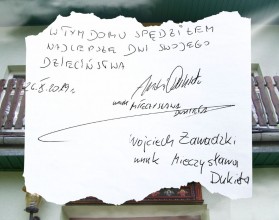 W TYM DOMU SPĘDZIŁEM
NAJLEPSZE DNI SWOJEGO
DZIECIŃSTWA
26.8.2019r.
WNUK MIECZYSŁAWA
DUKIETA
Wojciech Zawadzki
wnuk Mieczysława
Dukieta